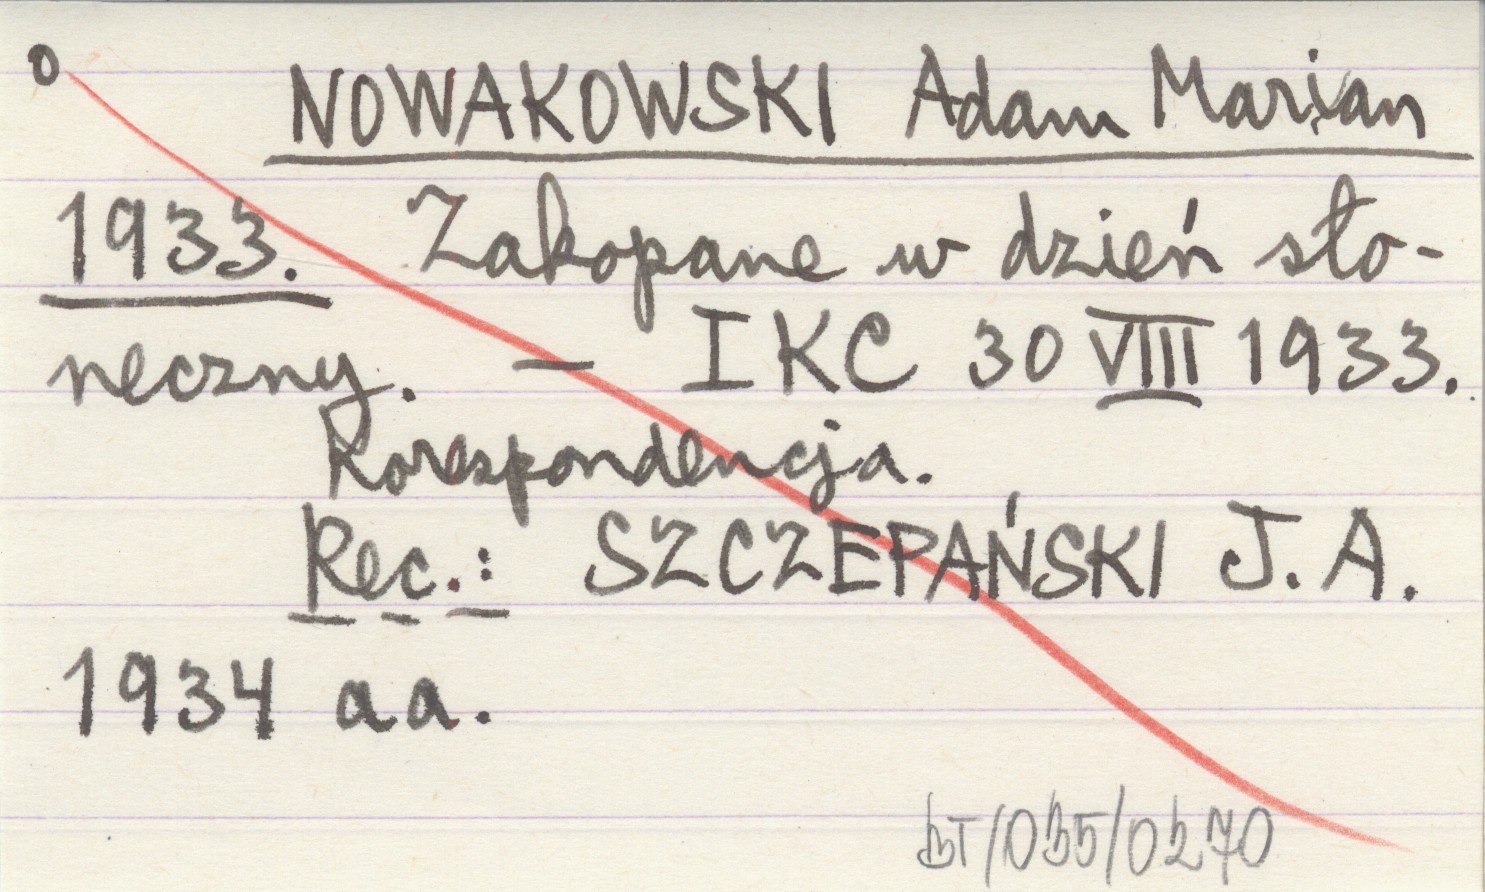 O NOWAKOWSKI Adam Marian
1933. Zakopane w dzień sło-
neczny. – IKC 30 VIII 1933.
Korespondencja.
Rec.: SZCZEPAŃSKI J. A.
1934 aa.
BT/035/0270